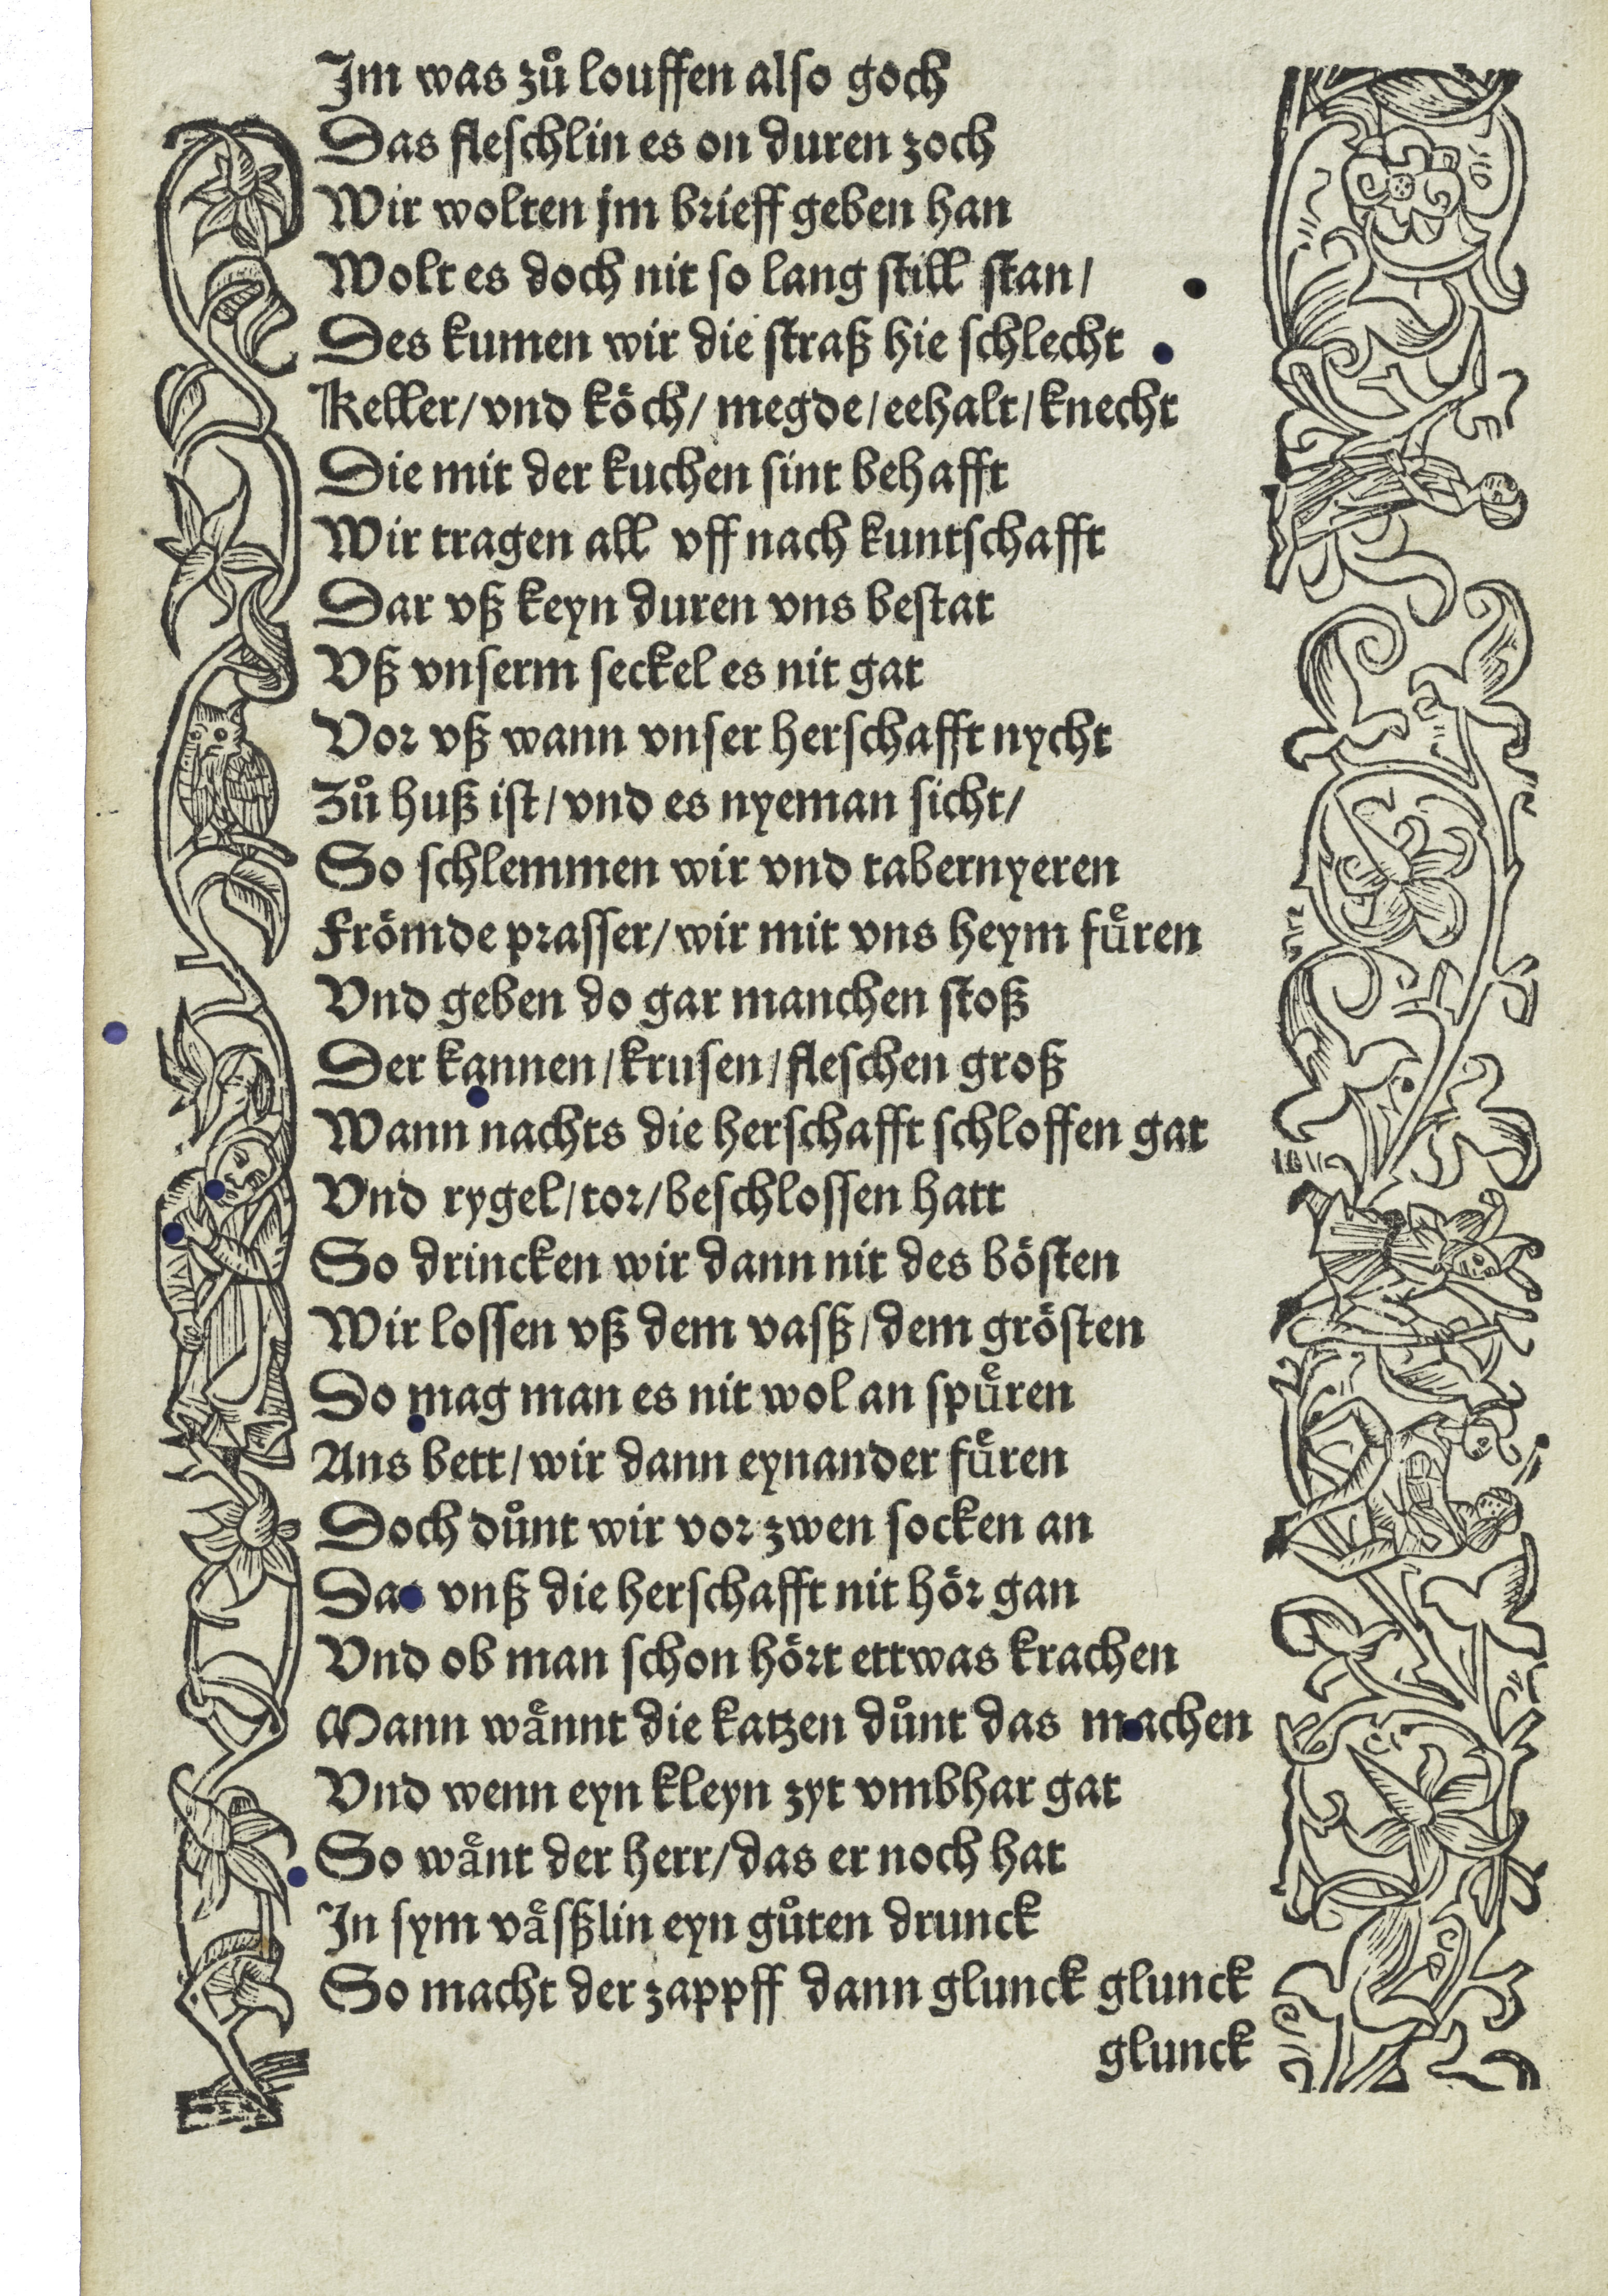 Im was zů louffen also goch
Das fleschlin es on duren zoch
Wir wolten jm brieff geben han
Wolt es doch nit so lang still stan/
Des kumen wir die straß hie schlecht
Keller/vnd kōch/megde/eehalt/knecht
Die mit der kuchen sint behafft
Wir tragen all vff nach kuntschafft
Dar vß keyn duren vns bestat
Vß vnserm seckel es nit gat
Vor vß wann vnser herschafft nycht
Zů huß ist/vnd es nyeman sicht/
So schlemmen wir vnd tabernyeren
Frömde prasser/wir mit vns heym fuͤren
Vnd geben do gar manchen stoß
Der kannen/krusen/fleschen groß
Wann nachts die herschafft schloffen gat
Vnd rygel/tor/beschlossen hatt
So drincken wir dann nit des bösten
Wir lossen vß dem vasß/dem grösten
Do mag man es nit wol an spuͤren
Ans bett/wir dann eynander fuͤren
Doch důnt wir vor zwen socken an
Das vnß die herschafft nit hör gan
Vnd ob man schon hört ettwas krachen
Mann waͤnnt die katzen důnt das machen
Vnd wenn eyn kleyn zyt vmbhar gat
So waͤnt der herr/das er noch hat
In sym vaͤsßlin eyn gůten drunck
So macht der zappff dann glunck glunck
glunck